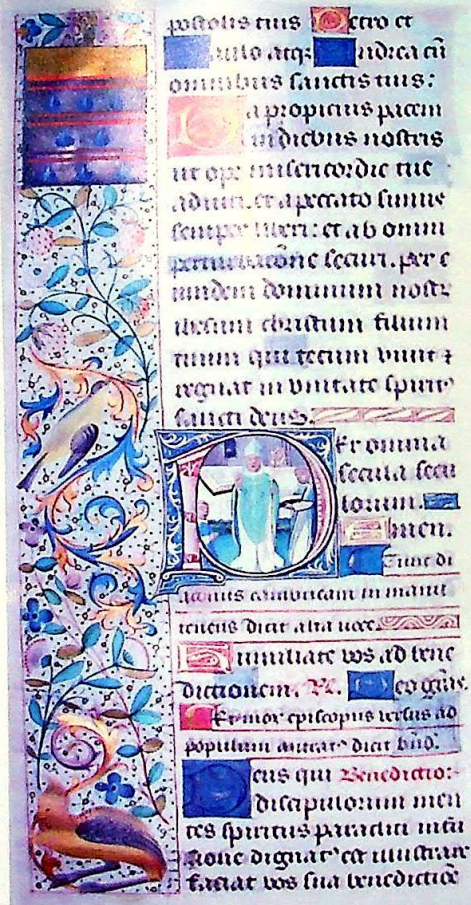 postolis tuis Petro et
Paulo atq3 Andrea cū
omnibus sanctis tuis:
Da propicius pacem
in diebus nostris
ut ope misericordie tue
adiuti. et a peccato simus
semper liberi: et ab omni
perturbacōne securi. per e
undem dominum nostr
ihesum christum filium
tuum qui tecum viuit ⁊
regnat in vnitate spirit
sancti deus.
Per omnia
secula secu
lorum.
Amen.
Tunc di
aconus cambucam in manu
tenens dicit alta uoce.
Humiliate vos ad bene
dictionem. R. Deo grās.
Et mox episcopus versus ad
populum dicit
Deus qui Benedictio:
discipulorum men
tes spiritus paracliti infu
sione dignat' est illustrare
faciat vos sua benedictiōe